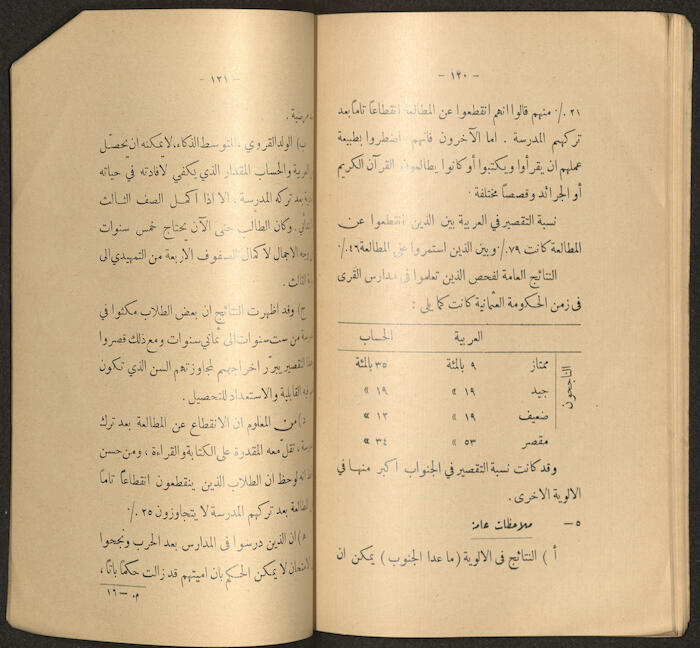 - ١٢٠ -
٢١ ٪ منهم قالوا انهم انقطعوا عن المطالعة انقطاعاً تاماً بعد
تركهم المدرسة . اما الآخرون فانهم اضطروا بطبيعة
عملهم ان يقرأوا ويكتبوا أو كانوا يطالعون القرآن الكريم
أو الجرائد وقصصاً مختلفة .
نسبة التقصير في العربية بين الذين انقطعوا عن
المطالعة كانت ٧٩ ٪ وبين الذين استمروا على المطالعة ٤٦ ٪
النتائج العامة لفحص الذين تعلموا في مدارس القرى
في زمن الحكومة العثمانية كانت كما يلي :
العربية الحساب
الناجحون
ممتاز ٩ بالمئة ٣٥ بالمئة
جيد ١٩ » ١٩ »
ضعيف ١٩ » ١٢ »
مقصر ٥٣ » ٣٤ »
وقد كانت نسبة التقصير في الجنوب اكبر منها في
الالوية الاخرى .
٥ - ملاحظات عامة
أ ) النتائج في الالوية ( ما عدا الجنوب ) يمكن ان
- ١٢١ -
مرضية .
ب) الولد القروي ، المتوسط الذكاء، لا يمكنه ان يحصّل
والحساب المقدار الذي يكفي لافادته في حياته
بعد تركه المدرسة ، الا اذا اكمل الصف الثالث
وكان الطالب حتى الآن يحتاج خمس سنوات
الاجمال لا كمال الصفوف الأربعة من التمهيدي الى
الثالث .
ج) وقد اظهرت النتائج ان بعض الطلاب مكثوا في
من ست سنوات الى ثماني سنوات ومع ذلك قصروا
التقصير يبرّر اخراجهم لمجاوزتهم السن الذي تكون
القابلية والاستعداد للتحصيل .
د) من المعلوم ان الانقطاع عن المطالعة بعد ترك
تقلّ معه المقدرة على الكتابة والقراءة ، ومن حسن
انه لوحظ ان الطلاب الذين ينقطعون انقطاعاً تاماً
المطالعة بعد تركهم المدرسة لا يتجاوزون ٢٥ ٪
ه) ان الذين درسوا في المدارس بعد الحرب ونجحوا
لا يمكن الحكم بان اميتهم قد زالت حكماً باتاً ،
م. - ١٦